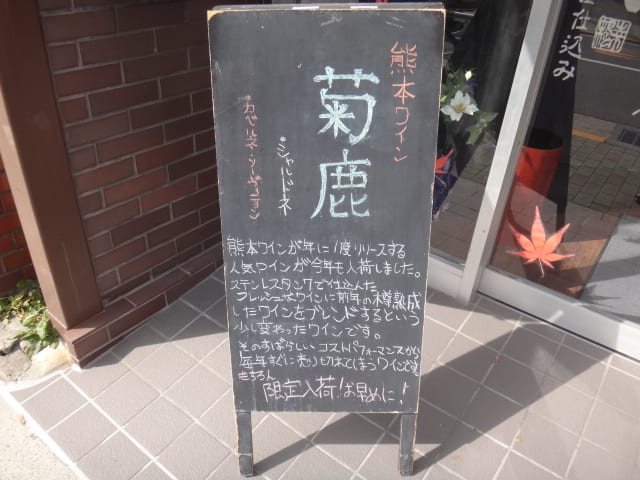 熊本ワイン
菊鹿
・シャルドネ
・カベルネ・ソーヴィニヨン
熊本ワインが年に1度リリースする
人気ワインが今年も入荷しました。
ステンレスタンクで仕込んだ
フレッシュなワインに前年の樽熟成
したワインをブレンドするという
少し変わったワインです。
そのすばらしいコストパフォーマンスから
毎年すぐに売り切れてしまうワインです。
もちろん
限定入荷!お早めに!
仕込み